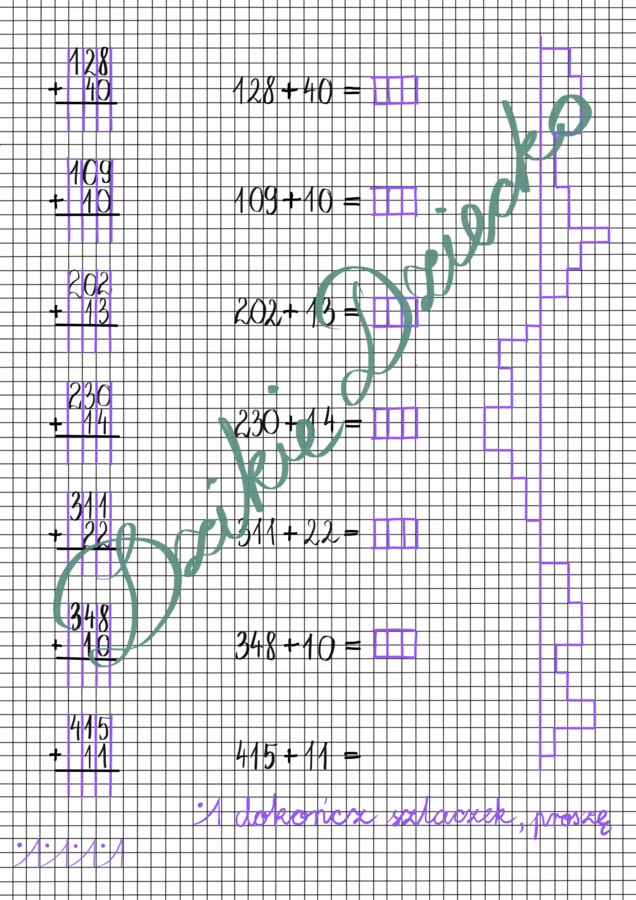 128
+ 40
128+40 =
109
+ 10
109+10 =
202
+ 13
202+13=
230
+ 14
230+14=
311
+ 22
311+22=
348
+ 10
348+10 =
415
+ 11
415+11 =
Dzikie Dziecko
dokończ szlaczek, proszę